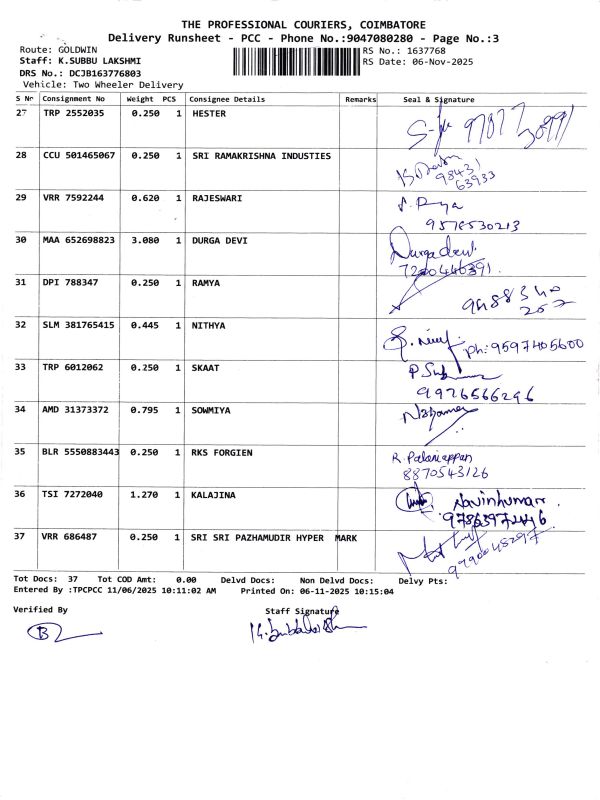 THE PROFESSIONAL COURIERS, COIMBATORE
Delivery Runsheet - PCC - Phone No.:9047080280 - Page No.:3
Route: GOLDWIN
RS No.: 1637768
Staff: K.SUBBU LAKSHMI
RS Date: 06-Nov-2025
DRS No.: DCJB163776803
Vehicle: Two Wheeler Delivery
S Nr Consignment No Weight PCS Consignee Details Remarks Seal & Signature
27 TRP 2552035 0.250 1 HESTER
28 CCU 501465067 0.250 1 SRI RAMAKRISHNA INDUSTIES
98431
63933
29 VRR 7592244 0.620 1 RAJESWARI
9578530213
30 MAA 652698823 3.080 1 DURGA DEVI Durgadevi
7200446391.
31 DPI 788347 0.250 1 RAMYA
32 SLM 381765415 0.445 1 NITHYA
Ph: 9597405600
33 TRP 6012062 0.250 1 SKAAT
9926566296
34 AMD 31373372 0.795 1 SOWMIYA
35 BLR 5550883443 0.250 1 RKS FORGIEN R. Palaniappan
8870543126
36 TSI 7272040 1.270 1 KALAJINA Navinkumar.
37 VRR 686487 0.250 1 SRI SRI PAZHAMUDIR HYPER MARK
Tot Docs: 37 Tot COD Amt: 0.00 Delvd Docs: Non Delvd Docs: Delvy Pts:
Entered By :TPCPCC 11/06/2025 10:11:02 AM Printed On: 06-11-2025 10:15:04
Verified By Staff Signature